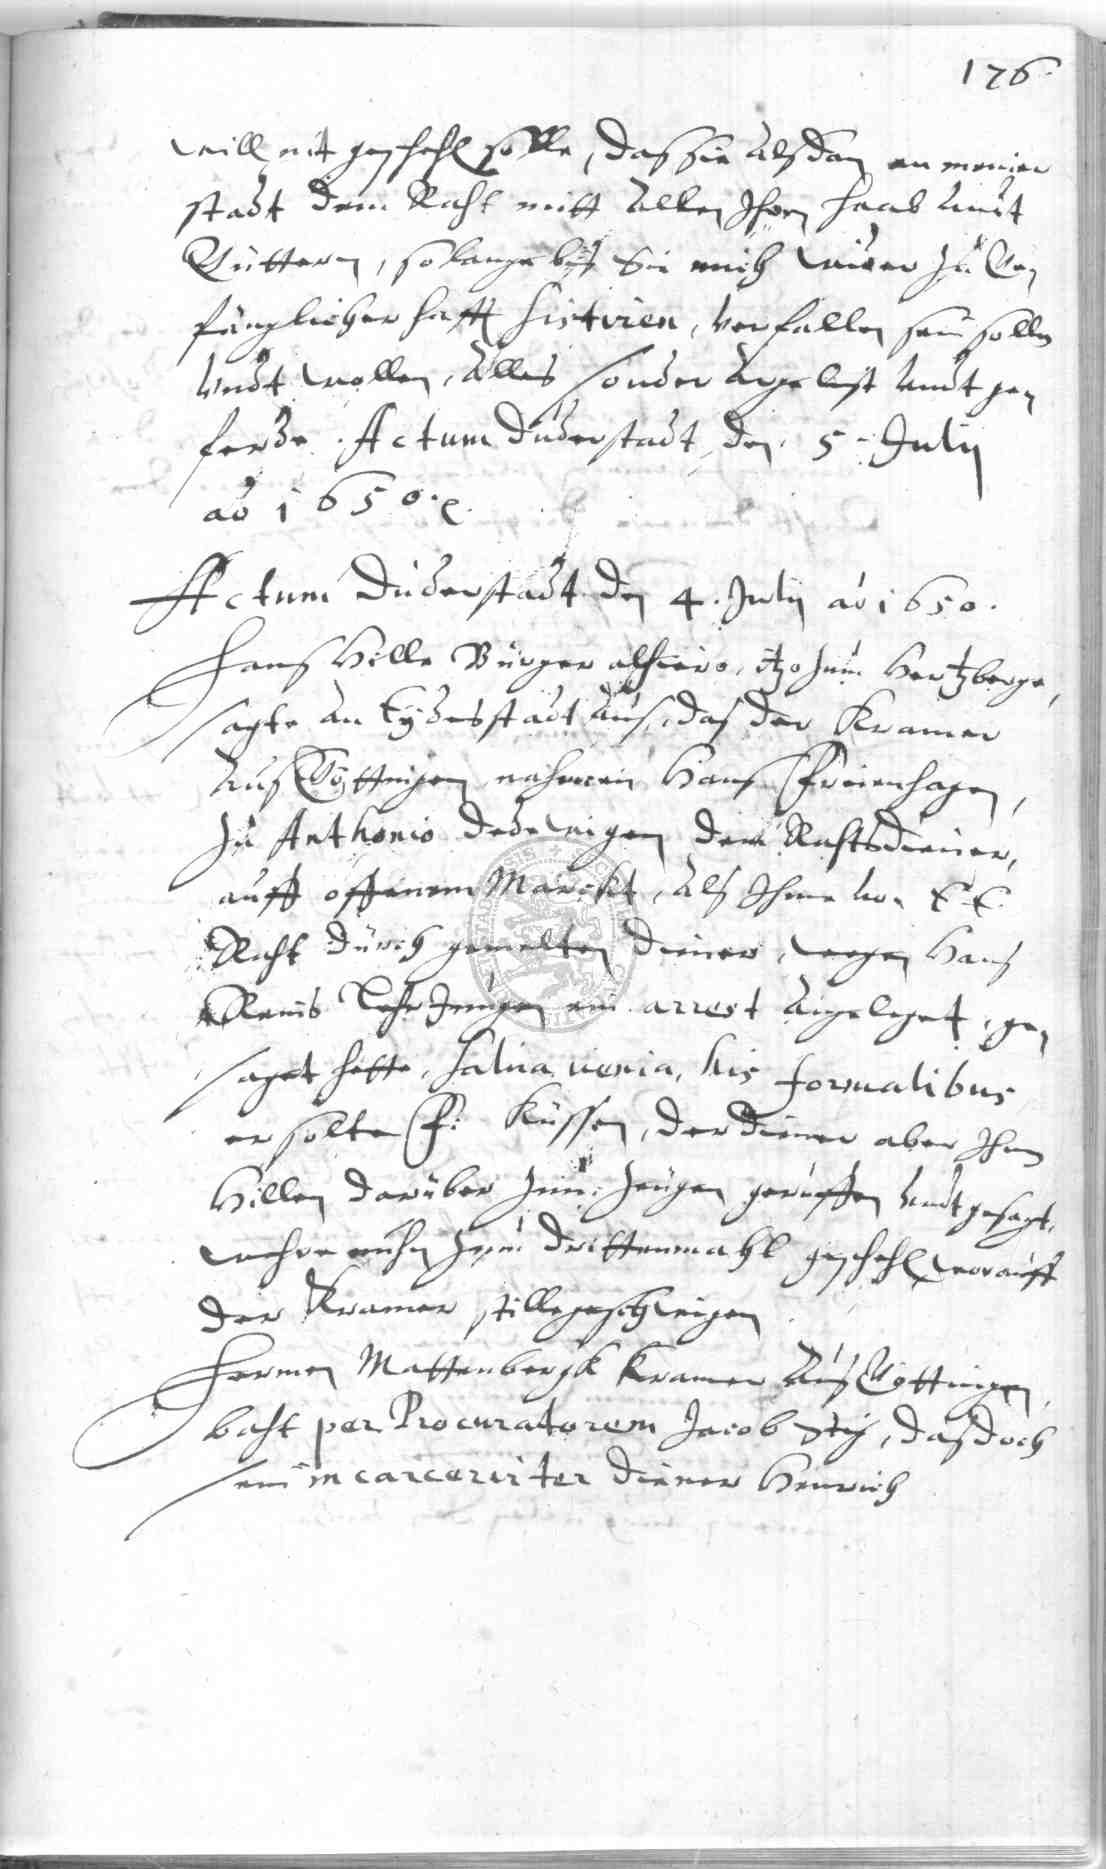 176.
will nit geschehen solle, das sie alsdan an meiner
stadt dem Raht mitt allen Ihren haab undt
Güttern, so lange biß Sie mich wider zu Ge-
fänglicher hafft sistiren, verfallen sein sollen
undt wollen, Alles sonder Argelist undt ge-
ferde. Actum Duderstadt den 5. Julij
ao 1650.
Actum Duderstadt den 4. Julij ao 1650.
Hans Hille Bürger alhiero, itzo zum Hertzberge,
sagte an Eydesstadt aus, das der Kramer
aus Göttingen nahmen Hans Freienhagen,
zu Anthonio Dedewigen dem Rahtsdiener,
auff offenem Marckt, als Ihme von E. E.
Raht durch gemelten diener, wegen Hans
Lehr Jungen ein arrest angeleget, ge-
saget hette, salva venia, his formalibus
er solte f: küssen, der diener aber Ihm
Hillen darüber zum Zeugen geruffen undt gesagt,
wehre nuhn zum drittenmahl geschehen, worauff
der Kramer stillgeschwigen.
Hermen Mattenbergk Kramer aus Göttingen,
baht per Procuratorem Jacob, das doch
sein incarcerirter diener Henrich